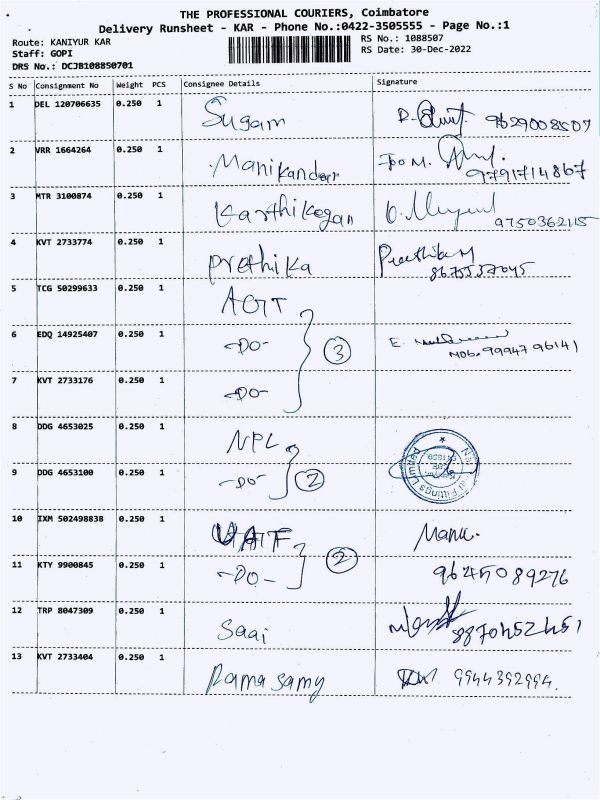 THE PROFESSIONAL COURIERS, Coimbatore
Delivery Runsheet - KAR - Phone No.:0422-3505555 - Page No.:1
Route: KANIYUR KAR
RS No.: 1088507
Staff: GOPI
RS Date: 30-Dec-2022
DRS No.: DCJB108850701
S No Consignment No Weight PCS Consignee Details Signature
1 DEL 120706635 0.250 1 Sugam 9629008507
2 VRR 1664264 0.250 1 Manikandan 9791714867
3 MTR 3100874 0.250 1 Karthikegan 9750362115
4 KVT 2733774 0.250 1 Prethika Preethika M
8675537045
5 TCG 50299633 0.250 1 AGIT
6 EDQ 14925407 0.250 1 -DO- 3 E.
Mob. 99947 96141
7 KVT 2733176 0.250 1 -DO-
8 DDG 4653025 0.250 1 NPL
9 DDG 4653100 0.250 1 -DO- 2
10 IXM 502498838 0.250 1 Manu.
11 KTY 9900845 0.250 1 -DO- 2 9645089276
12 TRP 8047309 0.250 1 Saai 8870452451
13 KVT 2733404 0.250 1 Ramasamy 9944392994.